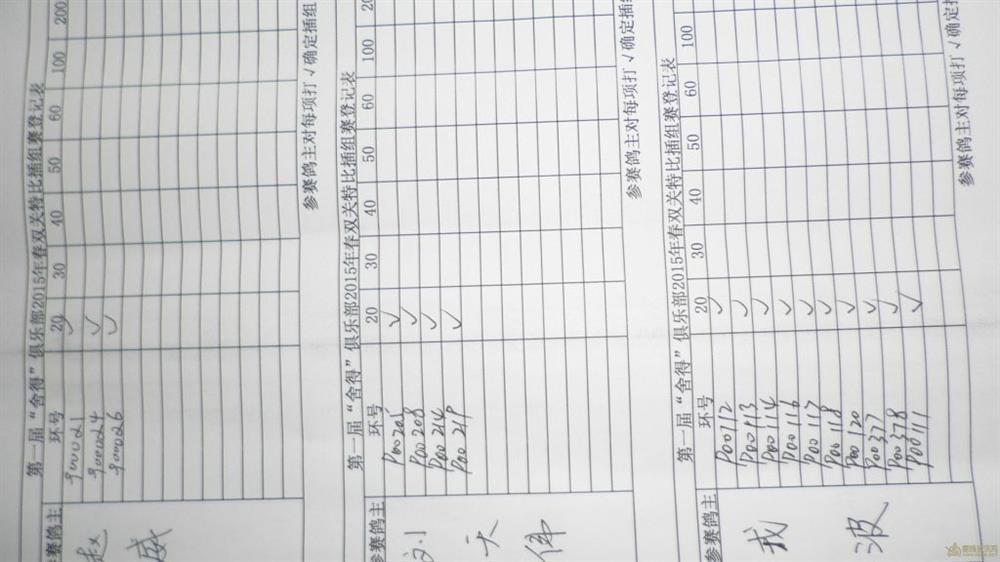 第一届“舍得”俱乐部2015年春双关特比插组赛登记表
参赛鸽主 环号 20 30 40 50 60 100 200
赵威
900021 ✓
900024 ✓
900026 ✓
参赛鸽主对每项打√确定插组
第一届“舍得”俱乐部2015年春双关特比插组赛登记表
环号 20 30 40 50 60 100 20
刘天伟
P00205 ✓
P00208 ✓
P00214 ✓
P00219 ✓
参赛鸽主对每项打√确定插组
第一届“舍得”俱乐部2015年春双关特比插组赛登记表
参赛鸽主 环号 20 30 40 50 60 100
波
P00112 ✓
P00113 ✓
P00114 ✓
P00116 ✓
P00117 ✓
P00118 ✓
P00120 ✓
P00377 ✓
P00378 ✓
P00111 ✓
参赛鸽主对每项打√确定插